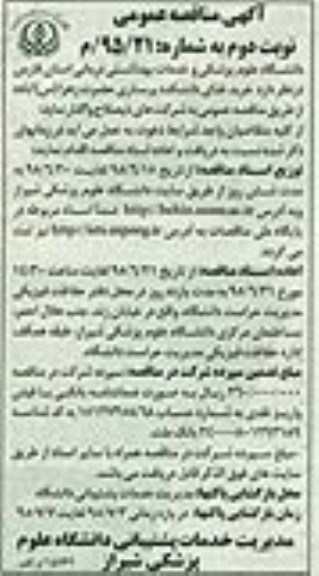 آگهی مناقصه عمومی
نوبت دوم به شماره: ۹۵/۲۱/م
دانشگاه علوم پزشکی و خدمات بهداشتی درمانی استان فارس
در نظر دارد خرید غذای دانشکده پرستاری حضرت زهرا (س) آباده
از طریق مناقصه عمومی به شرکت های ذیصلاح واگذار نماید؛
از کلیه متقاضیان واجد شرایط دعوت به عمل می آید در زمانهای
ذکر شده نسبت به دریافت و اعاده اسناد مناقصه اقدام نمایند؛
توزیع اسناد مناقصه: از تاریخ ۹۸/۶/۱۶ لغایت ۹۸/۶/۲۰ به
مدت روز از طریق سایت دانشگاه علوم پزشکی شیراز
به آدرس ضمناً اسناد مربوطه در
پایگاه ملی مناقصات به آدرس http://iets.mporg.ir نیز ثبت
می گردد.
اعاده اسناد مناقصه: از تاریخ ۹۸/۶/۲۱ لغایت ساعت ۱۴:۳۰
مورخ ۹۸/۶/۳۱ به مدت روز در محل دفتر حفاظت فیزیکی
مدیریت حراست دانشگاه واقع در خیابان زند، جنب هلال احمر،
ساختمان مرکزی دانشگاه علوم پزشکی شیراز، طبقه همکف
اداره حفاظت فیزیکی مدیریت حراست دانشگاه.
مبلغ تضمین سپرده شرکت در مناقصه: سپرده شرکت در مناقصه
ریال به صورت ضمانتنامه بانکی یا فیش
واریز نقدی به شماره حساب به کد شناسه
بانک ملت
-مبلغ سپرده شرکت در مناقصه همراه با سایر اسناد از طریق
سایت های فوق الذکر قابل دریافت می باشد.
محل بازگشایی پاکتها: مدیریت خدمات پشتیبانی دانشگاه
زمان بازگشایی پاکتها: در بازه زمانی ۹۸/۷/۲ لغایت ۹۸/۷/۷
مدیریت خدمات پشتیبانی دانشگاه علوم
پزشکی شیراز